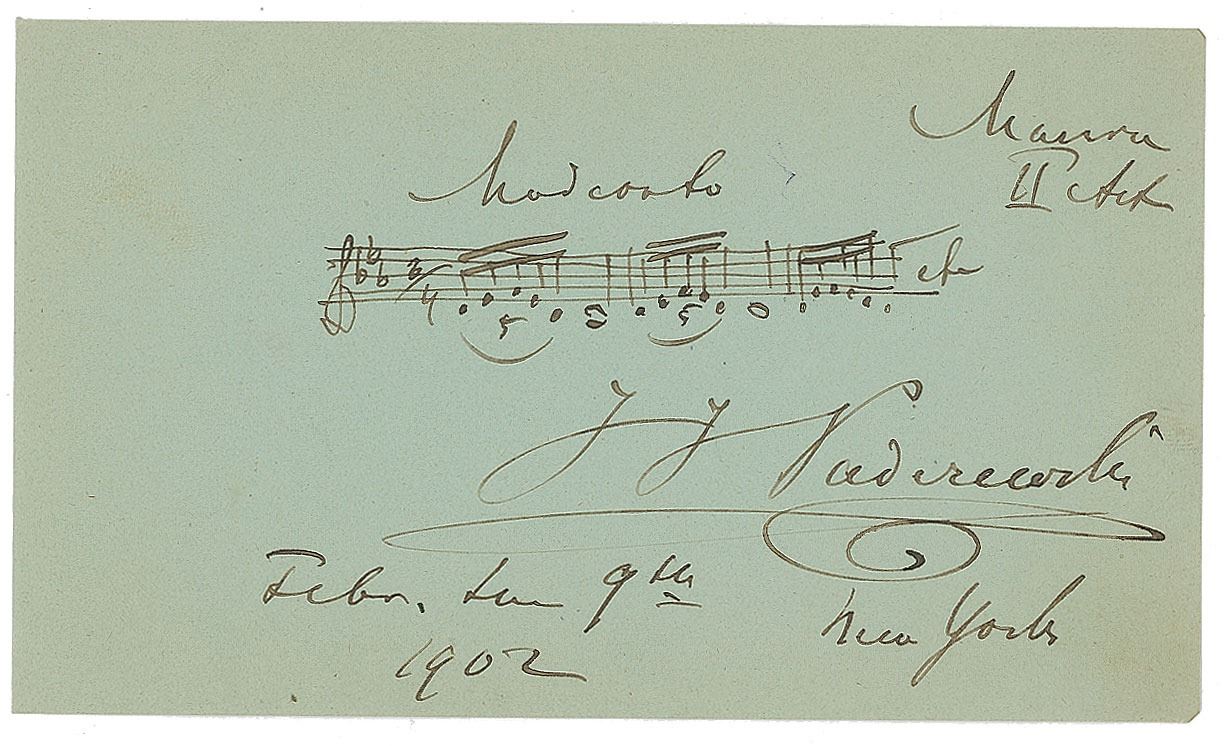 Manru
II Act
Moderato
3/4
5
5
etc
I J Paderewski
Febr. the 9th
1902
New York